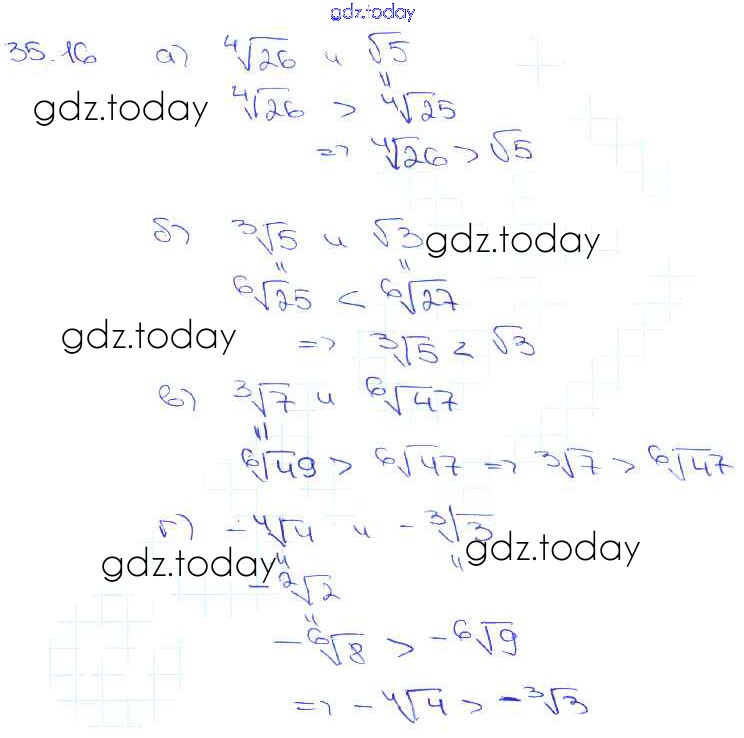 gdz.today
35.16 а) ⁴√26 и √5
=
gdz.today ⁴√26 > ⁴√25
=> ⁴√26 > √5
б) ³√5 и √3 gdz.today
= =
⁶√25 < ⁶√27
gdz.today => ³√5 < √3
в) ³√7 и ⁶√47
=
⁶√49 > ⁶√47 => ³√7 > ⁶√47
г) -⁴√4 и -³√3
gdz.today = = gdz.today
-²√2
=
-⁶√8 > -⁶√9
=> -⁴√4 > -³√3